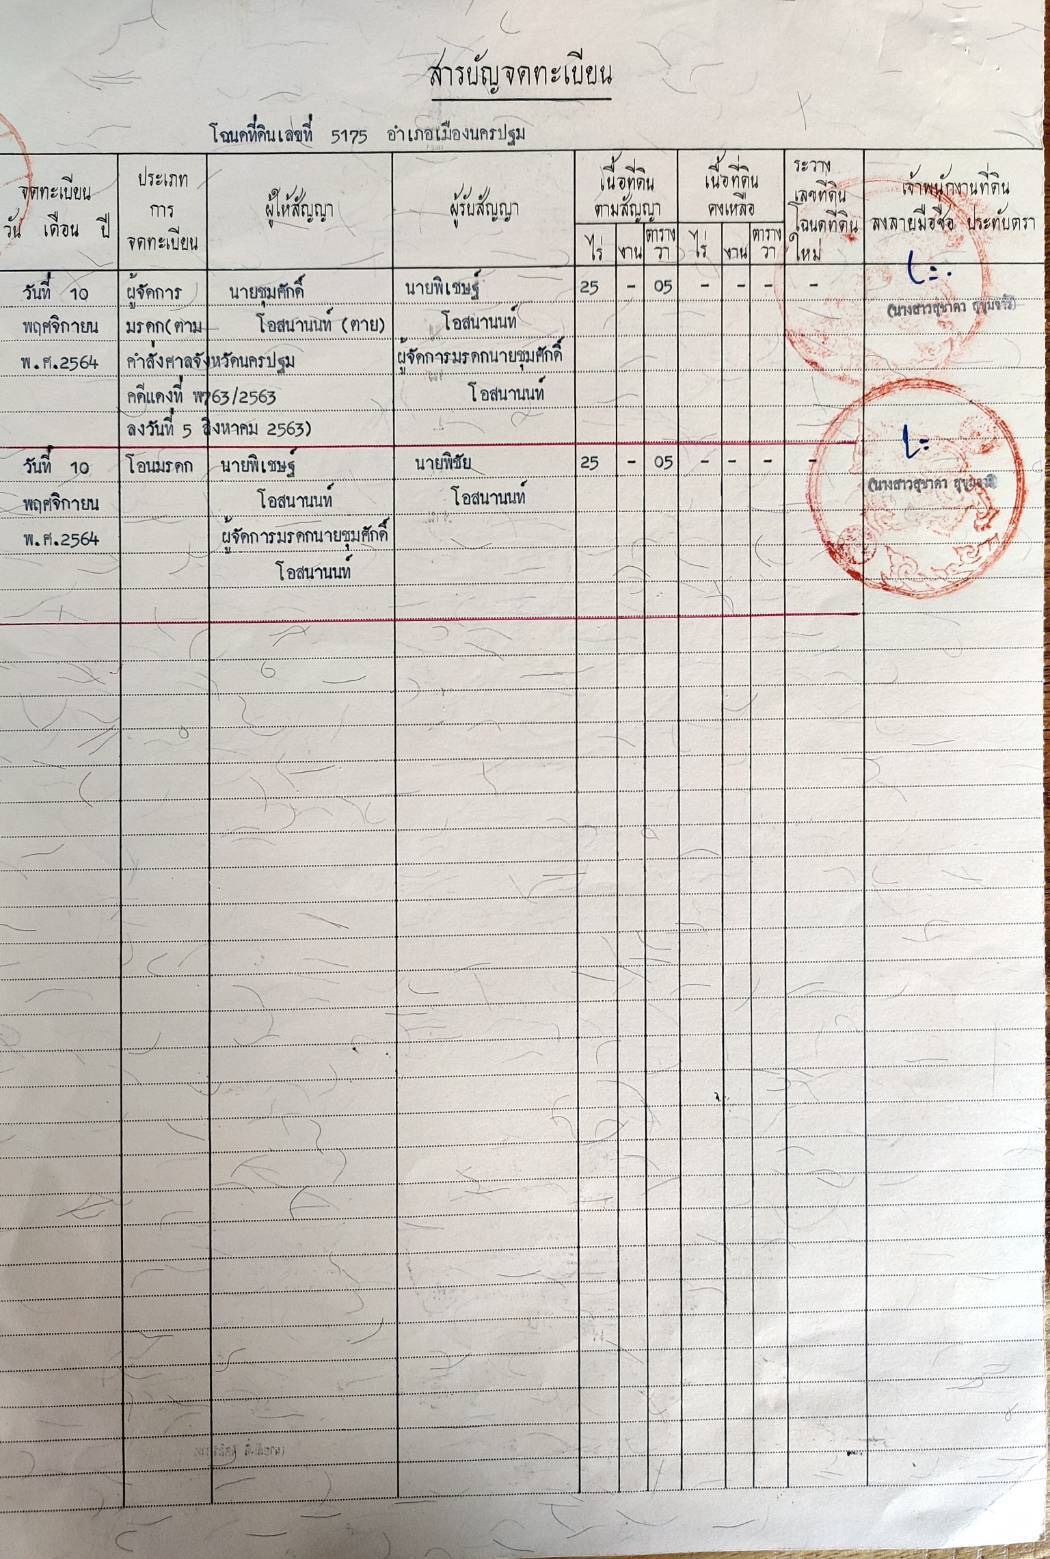 สารบัญจดทะเบียน
โฉนดที่ดินเลขที่ 5175 อำเภอเมืองนครปฐม
จดทะเบียน
วัน เดือน ปี
ประเภท
การ
จดทะเบียน
ผู้ให้สัญญา
ผู้รับสัญญา
เนื้อที่ดิน
ตามสัญญา
ไร่ งาน ตาราง
วา
เนื้อที่ดิน
คงเหลือ
ไร่ งาน ตาราง
วา
ระวาง
เลขที่ดิน
โฉนดที่ดิน
ใหม่
เจ้าพนักงานที่ดิน
ลงลายมือชื่อ ประทับตรา
วันที่ 10 ผู้จัดการ นายชุมศักดิ์ นายพิเชษฐ์ 25 - 05 - - - -
พฤศจิกายน มรดก(ตาม โอสนานนท์ (ตาย) โอสนานนท์ (นางสาวสุชาดา
พ.ศ.2564 คำสั่งศาลจังหวัดนครปฐม ผู้จัดการมรดกนายชุมศักดิ์
คดีแดงที่ พ763/2563 โอสนานนท์
ลงวันที่ 5 สิงหาคม 2563)
วันที่ 10 โอนมรดก นายพิเชษฐ์ นายพิชัย 25 - 05 - - - -
พฤศจิกายน โอสนานนท์ โอสนานนท์ (นางสาวสุชาดา
พ.ศ.2564 ผู้จัดการมรดกนายชุมศักดิ์
โอสนานนท์